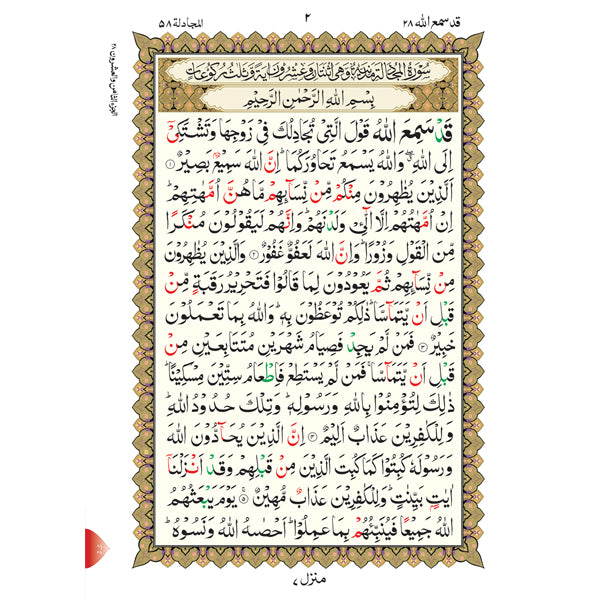 قد سمع الله ۲۸
۲
المجادلة ۵۸
الجزء الثامن والعشرون ۲۸
سُوْرَةُ الْمُجَادَلَةِ مَدَنِيَّةٌ وَّهِىَ اثْنَتَانِ وَعِشْرُوْنَ اٰيَةً وَّثَلٰثُ رُكُوْعَاتٍ
بِسْمِ اللهِ الرَّحْمٰنِ الرَّحِيْمِ
قَدْ سَمِعَ اللهُ قَوْلَ الَّتِىْ تُجَادِلُكَ فِىْ زَوْجِهَا وَتَشْتَكِىْٓ
اِلَى اللهِ ۖ وَاللهُ يَسْمَعُ تَحَاوُرَكُمَا ؕ اِنَّ اللهَ سَمِيْعٌۢ بَصِيْرٌ ۝۱
اَلَّذِيْنَ يُظٰهِرُوْنَ مِنْكُمْ مِّنْ نِّسَآئِهِمْ مَّا هُنَّ اُمَّهٰتِهِمْ ؕ
اِنْ اُمَّهٰتُهُمْ اِلَّا الّٰٓـِٔىْ وَلَدْنَهُمْ ؕ وَاِنَّهُمْ لَيَقُوْلُوْنَ مُنْكَرًا
مِّنَ الْقَوْلِ وَزُوْرًا ؕ وَاِنَّ اللهَ لَعَفُوٌّ غَفُوْرٌ ۝۲ وَالَّذِيْنَ يُظٰهِرُوْنَ
مِنْ نِّسَآئِهِمْ ثُمَّ يَعُوْدُوْنَ لِمَا قَالُوْا فَتَحْرِيْرُ رَقَبَةٍ مِّنْ
قَبْلِ اَنْ يَّتَمَآسَّا ؕ ذٰلِكُمْ تُوْعَظُوْنَ بِهٖ ؕ وَاللهُ بِمَا تَعْمَلُوْنَ
خَبِيْرٌ ۝۳ فَمَنْ لَّمْ يَجِدْ فَصِيَامُ شَهْرَيْنِ مُتَتَابِعَيْنِ مِنْ
قَبْلِ اَنْ يَّتَمَآسَّا ۚ فَمَنْ لَّمْ يَسْتَطِعْ فَاِطْعَامُ سِتِّيْنَ مِسْكِيْنًا ؕ
ذٰلِكَ لِتُؤْمِنُوْا بِاللهِ وَرَسُوْلِهٖ ؕ وَتِلْكَ حُدُوْدُ اللهِ ؕ
وَلِلْكٰفِرِيْنَ عَذَابٌ اَلِيْمٌ ۝۴ اِنَّ الَّذِيْنَ يُحَآدُّوْنَ اللهَ
وَرَسُوْلَهٗ كُبِتُوْا كَمَا كُبِتَ الَّذِيْنَ مِنْ قَبْلِهِمْ وَقَدْ اَنْزَلْنَآ
اٰيٰتٍۢ بَيِّنٰتٍ ؕ وَلِلْكٰفِرِيْنَ عَذَابٌ مُّهِيْنٌ ۝۵ يَوْمَ يَبْعَثُهُمُ
اللهُ جَمِيْعًا فَيُنَبِّئُهُمْ بِمَا عَمِلُوْا ؕ اَحْصٰىهُ اللهُ وَنَسُوْهُ ؕ
منزل ۷